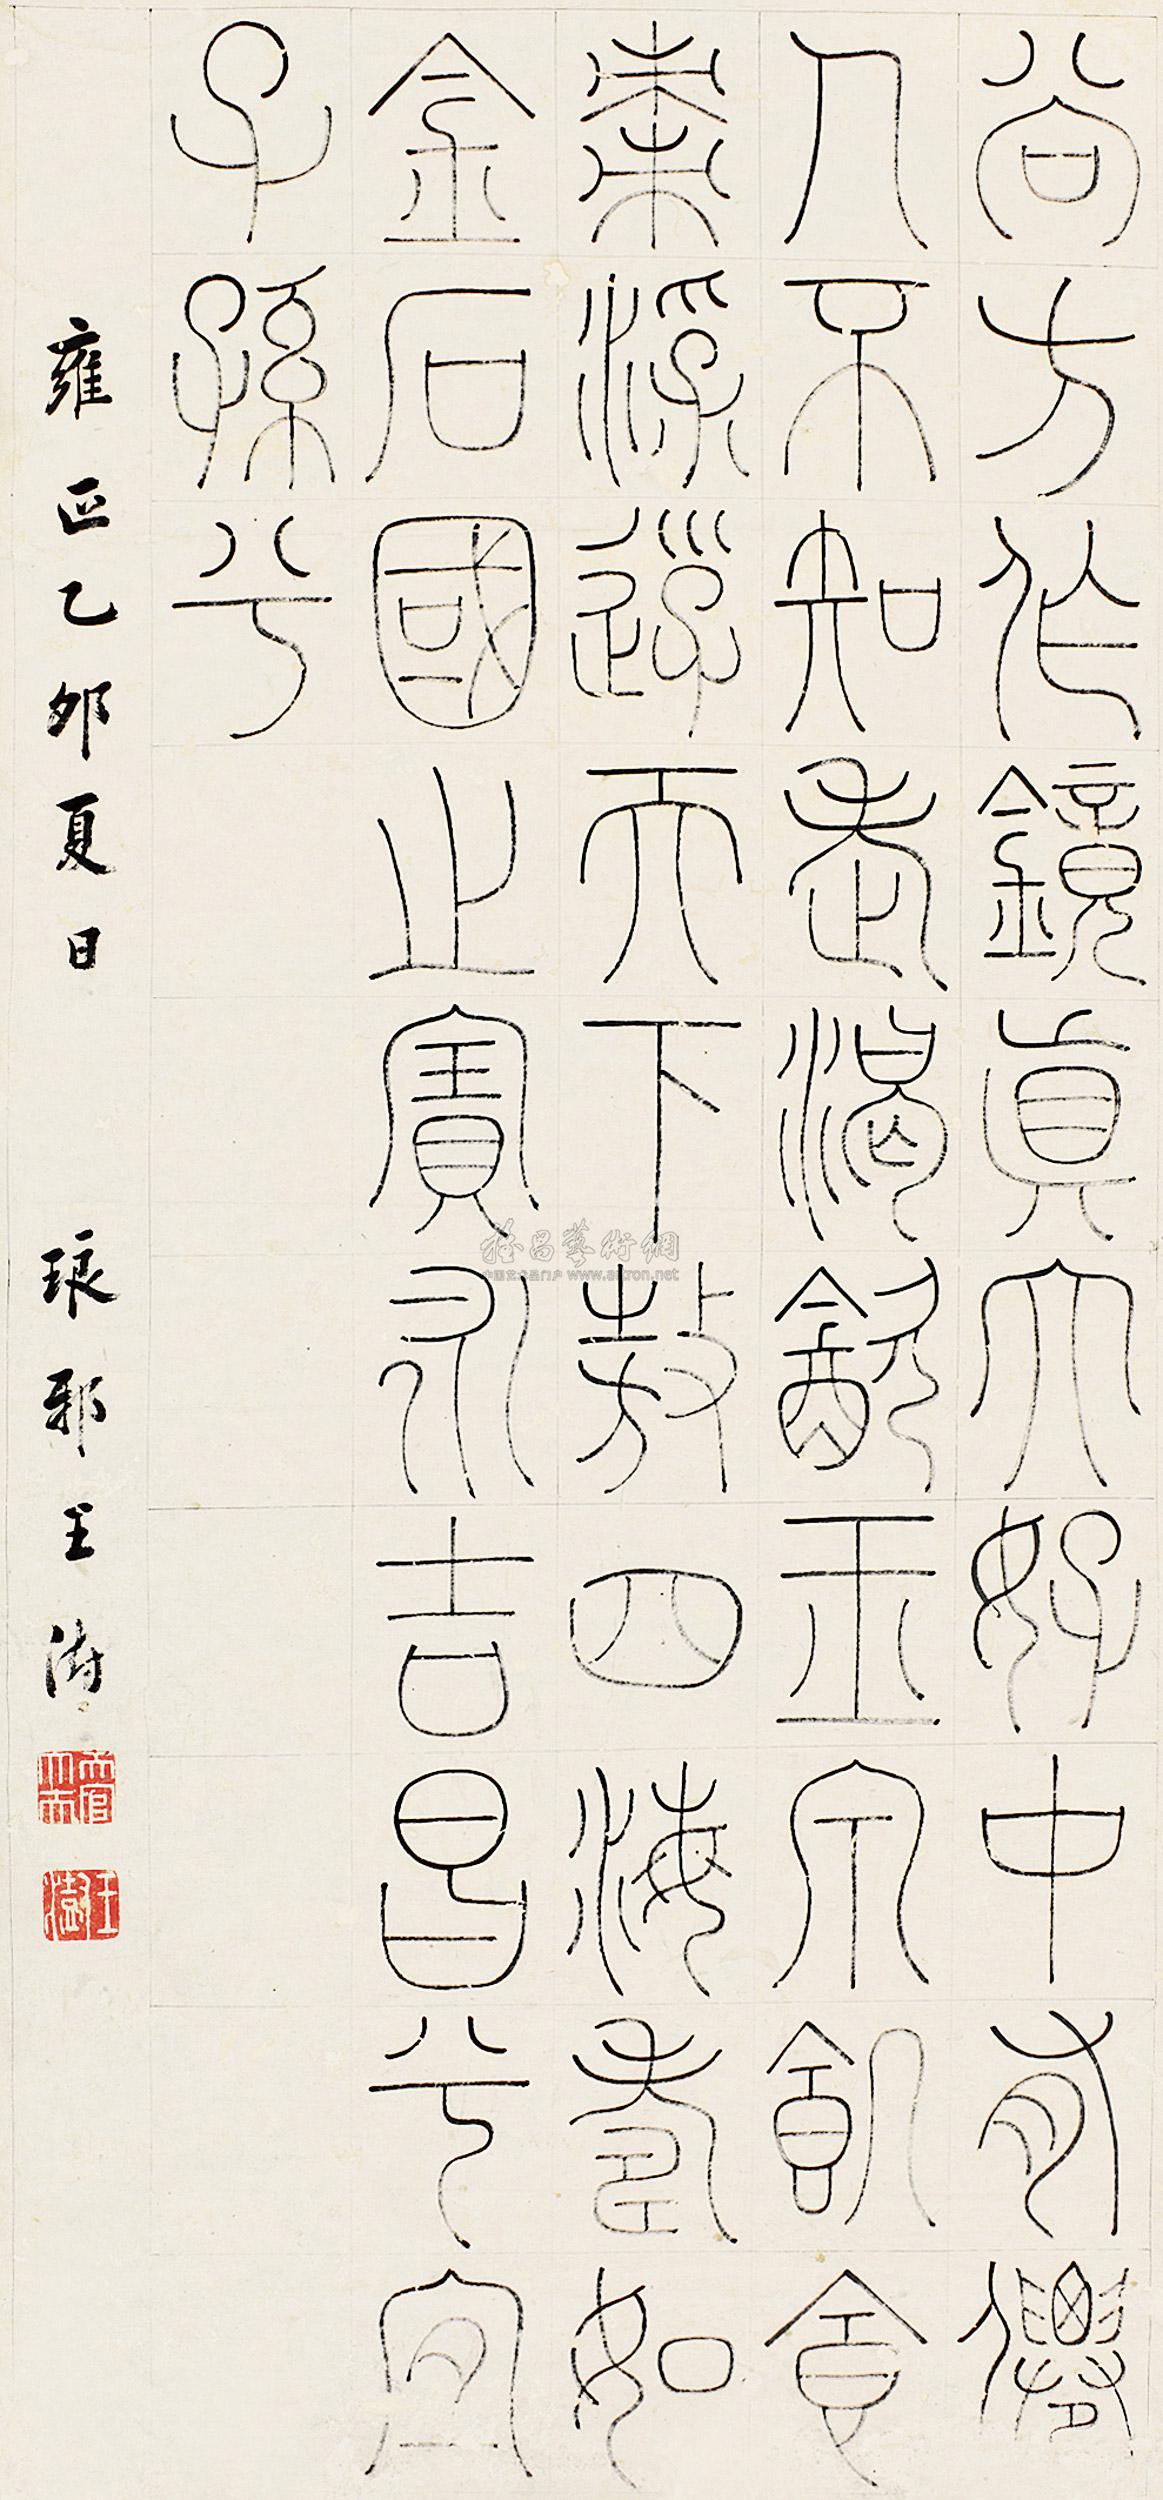 尚方作鏡真大好中有僊
人不知老渴飲玉泉飢食
棗浮游天下敖四海壽如
金石國之寶永吉昌兮宜
子孫兮
雍正乙卯夏日 琅邪王澍
王澍
雅昌藝術網
www.artron.net